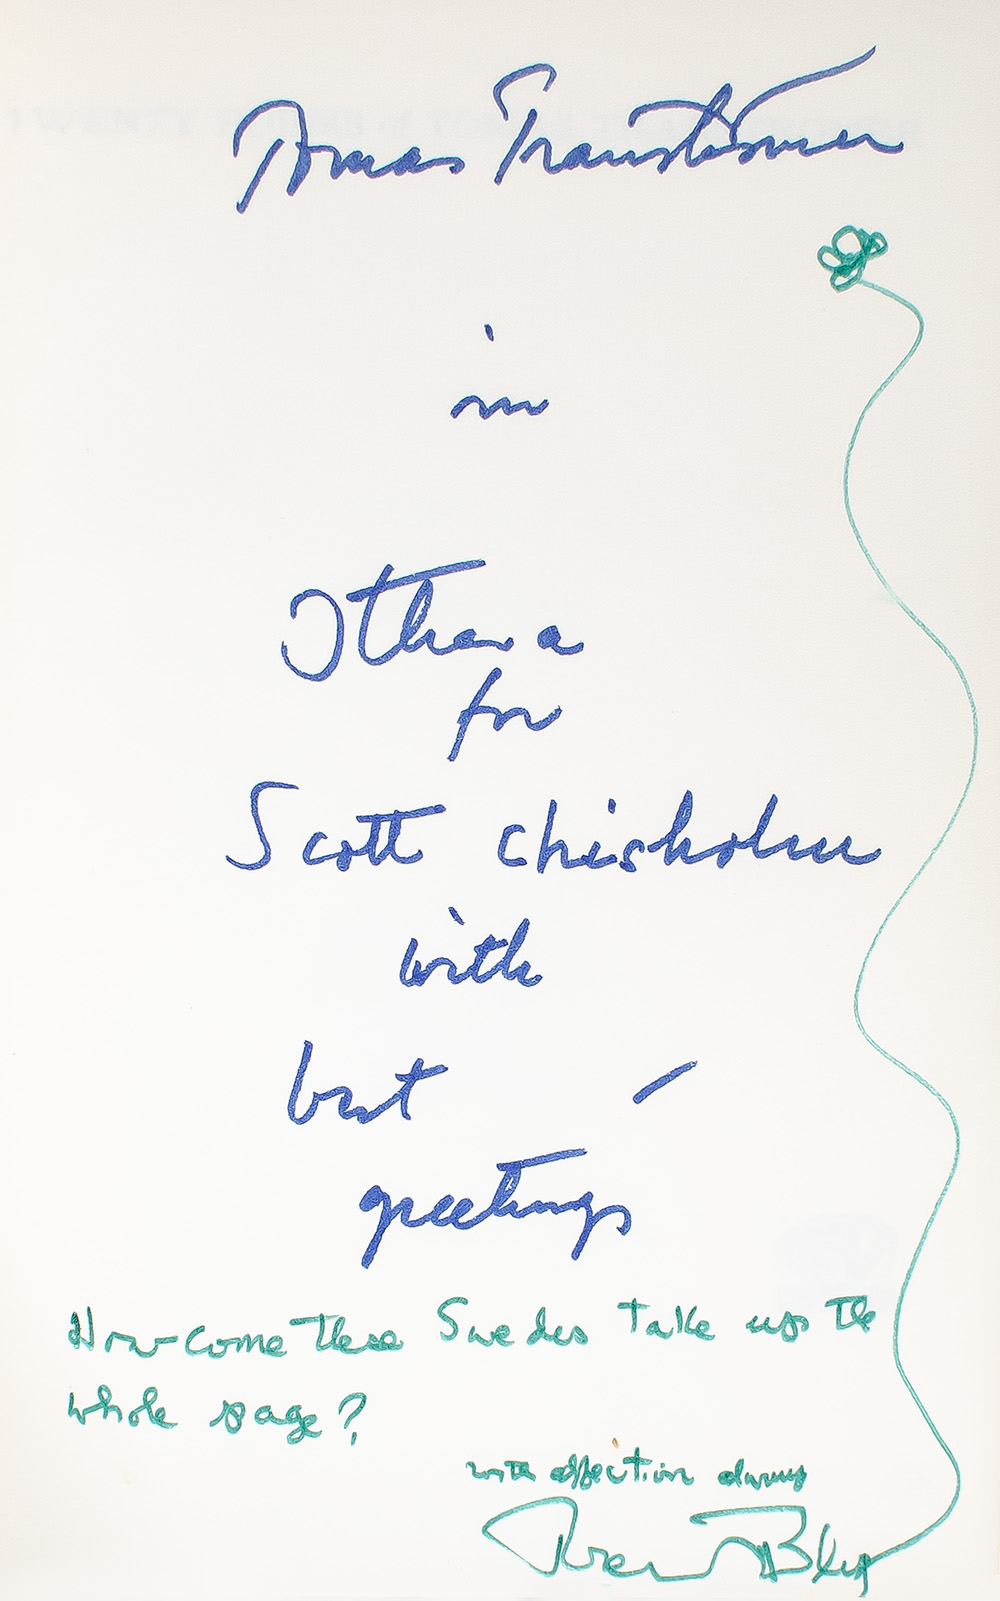 Tomas Tranströmer
in
Ithaca
for
Scott Chisholm
with
best
greetings
How come these Swedes take up the
whole page?
with affection always
Robert Bly